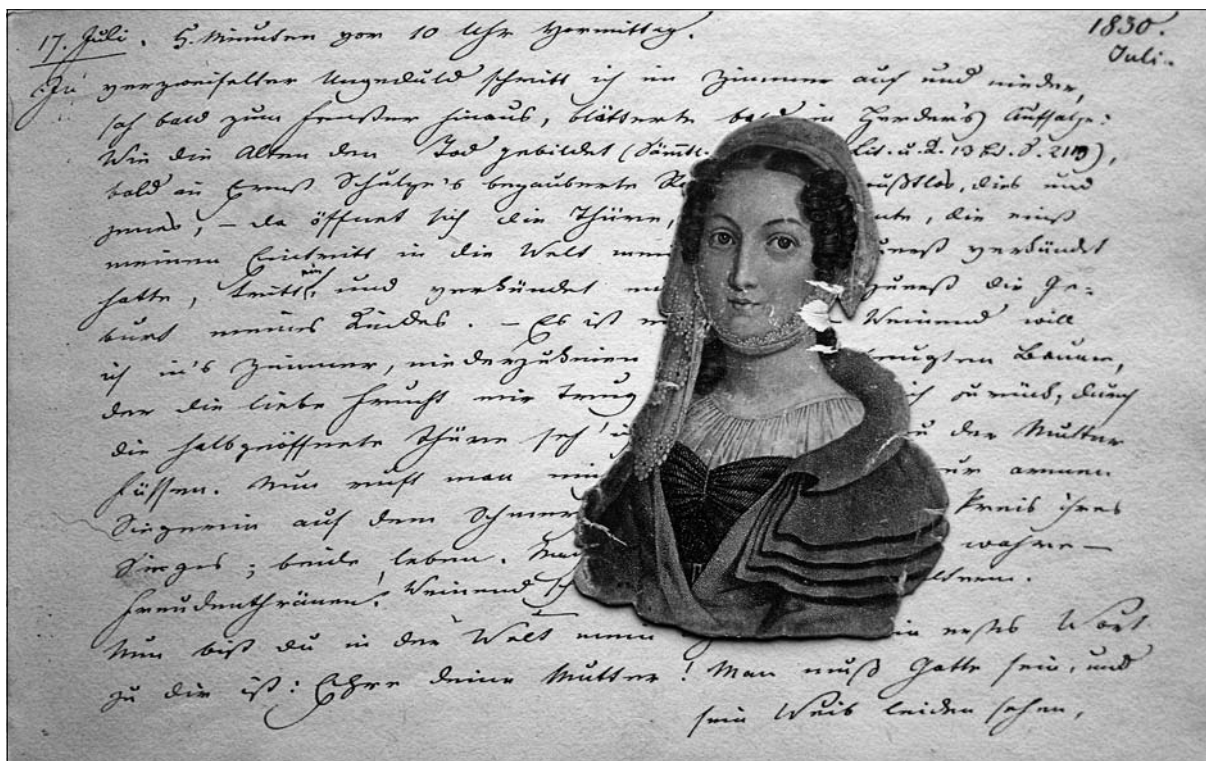 1830.
Juli.
17. Juli. 5. Minuten vor 10 Uhr Vormittag.
In verzweifelter Ungeduld schritt ich im Zimmer auf und nieder,
sah bald zum Fenster hinaus, blätterte bald in Herder's Aufsatze:
Wie die Alten den Tod gebildet (Sämtl. Lit. u. K. 13 Bd. S.
bald in Ernst Schulze's bezauberte dies und
jenes, – da öffnet sich die Thüre, die einst
meinen Eintritt in die Welt zuerst verkündet
hatte, tritt ein und verkündet zuerst die Ge-
burt meines Kindes. – Es ist – Weinend will
ich in's Zimmer, niederzuknien
der die liebe Frucht mir trug zurück, durch
die halbgeöffnete Thüre seh' zu der Mutter
Füssen. Nun ruft man armen
Siegerin auf dem Preis ihres
Sieges; beide leben. wahre –
Freudenthränen! Weinend
Nun bist du in der Welt mein erstes Wort
zu dir ist: Ehre deine Mutter! Man muß Gatte sein, und
sein Weib leiden sehen,